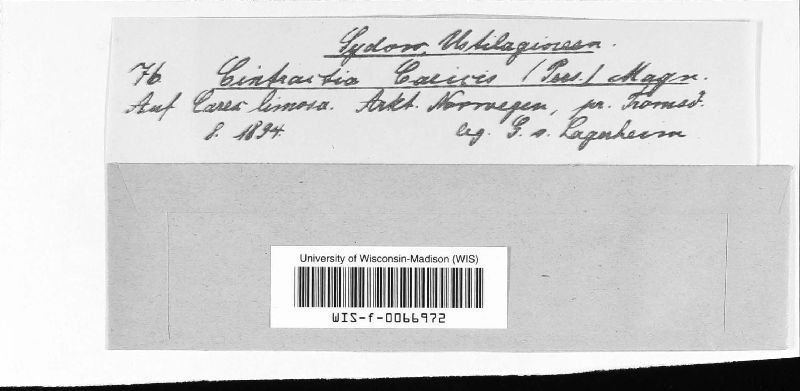 Sydow, Ustilagineen.
76 Cintractia Caricis (Pers.) Magn.
Auf Carex limosa. Arkt. Norwegen, pr. Tromsö.
8. 1894. leg. G. v. Lagerheim
University of Wisconsin-Madison (WIS)
WIS-f-0066972